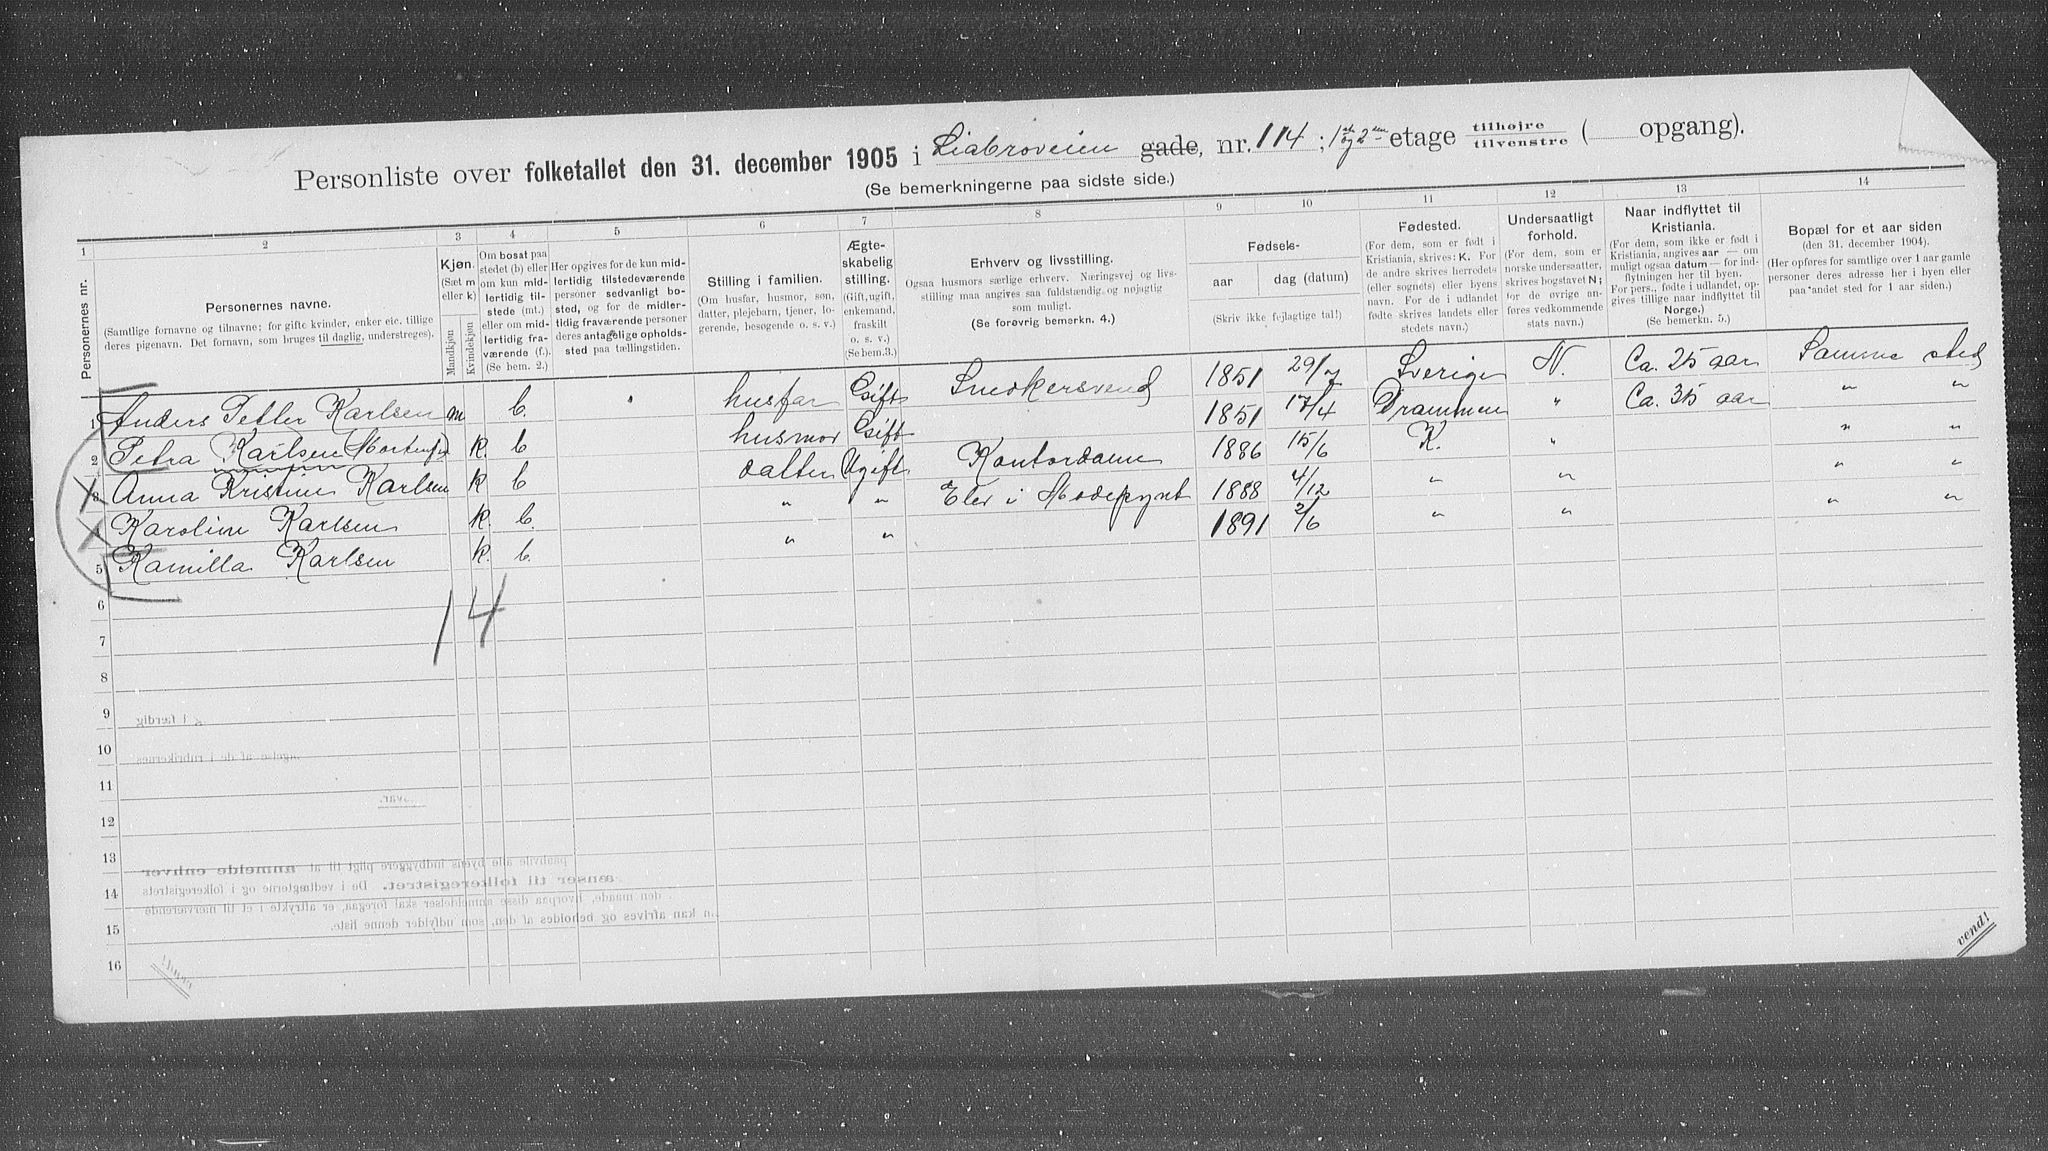 Personliste over folketallet den 31. december 1905 i Liabroveien gade, nr. 114; 1ste og 2den etage tilhøjre tilvenstre ( opgang).
(Se bemerkningerne paa sidste side.)
1 2 3 4 5 6 7 8 9 10 11 12 13 14
Personernes nr.
Personernes navne.
(Samtlige fornavne og tilnavne; for gifte kvinder, enker etc. tillige deres pigenavn. Det fornavn, som bruges til daglig, understreges).
Kjøn.
(Sæt m eller k)
Mandkjøn
Kvindekjøn
Om bosat paa stedet (b) eller om kun midlertidig tilstede (mt.) eller om midlertidig fraværende (f.).
(Se bem. 2.)
Her opgives for de kun midlertidig tilstedeværende personer sedvanligt bosted, og for de midlertidig fraværende personer deres antagelige opholdssted paa tællingstiden.
Stilling i familien.
(Om husfar, husmor, søn, datter, plejebarn, tjener, logerende, besøgende o. s. v.)
Ægteskabelig stilling.
(Gift, ugift, enkemand, fraskilt o. s. v.)
(Se bem. 3.)
Erhverv og livsstilling.
Ogsaa husmors særlige erhverv. Næringsvej og livsstilling maa angives saa fuldstændig og nøjagtig som muligt.
(Se forøvrig bemerkn. 4.)
Fødsels-
aar
dag (datum)
(Skriv ikke fejlagtige tal!)
Fødested.
(For dem, som er født i Kristiania, skrives: K. For de andre skrives herredets (eller sognets) eller byens navn. For de i udlandet fødte skrives landets eller stedets navn.)
Undersaatligt forhold.
(For dem, som er norske undersaatter, skrives bogstavet N; for de øvrige anføres vedkommende stats navn.)
Naar indflyttet til Kristiania.
(For dem, som ikke er født i Kristiania, angives aar — om muligt ogsaa datum — for indflytningen her til byen. For pers., fødte i udlandet, opgives tillige naar indflyttet til Norge.)
(Se bemerkn. 5.)
Bopæl for et aar siden
(den 31. december 1904).
(Her opføres for samtlige over 1 aar gamle personer deres adresse her i byen eller paa andet sted for 1 aar siden.)
1 Anders Petter Karlsen m b. husfar Gift Snedkersvend 1851 29/7 Sverige N. Ca. 25 aar Samme sted
2 Petra Karlsen k. b husmor Gift 1851 17/4 Drammen " Ca. 35 aar " "
3 Anna Kristine Karlsen k b datter Ugift Kontordame 1886 15/6 K. " " "
4 Karoline Karlsen k. b. " " Elev i Modepynt 1888 4/12 " " " "
5 Kamilla Karlsen k. b. " " 1891 2/6 " " " "
1 4
6
7
8
9
10
11
12
13
14
15
16
vend!